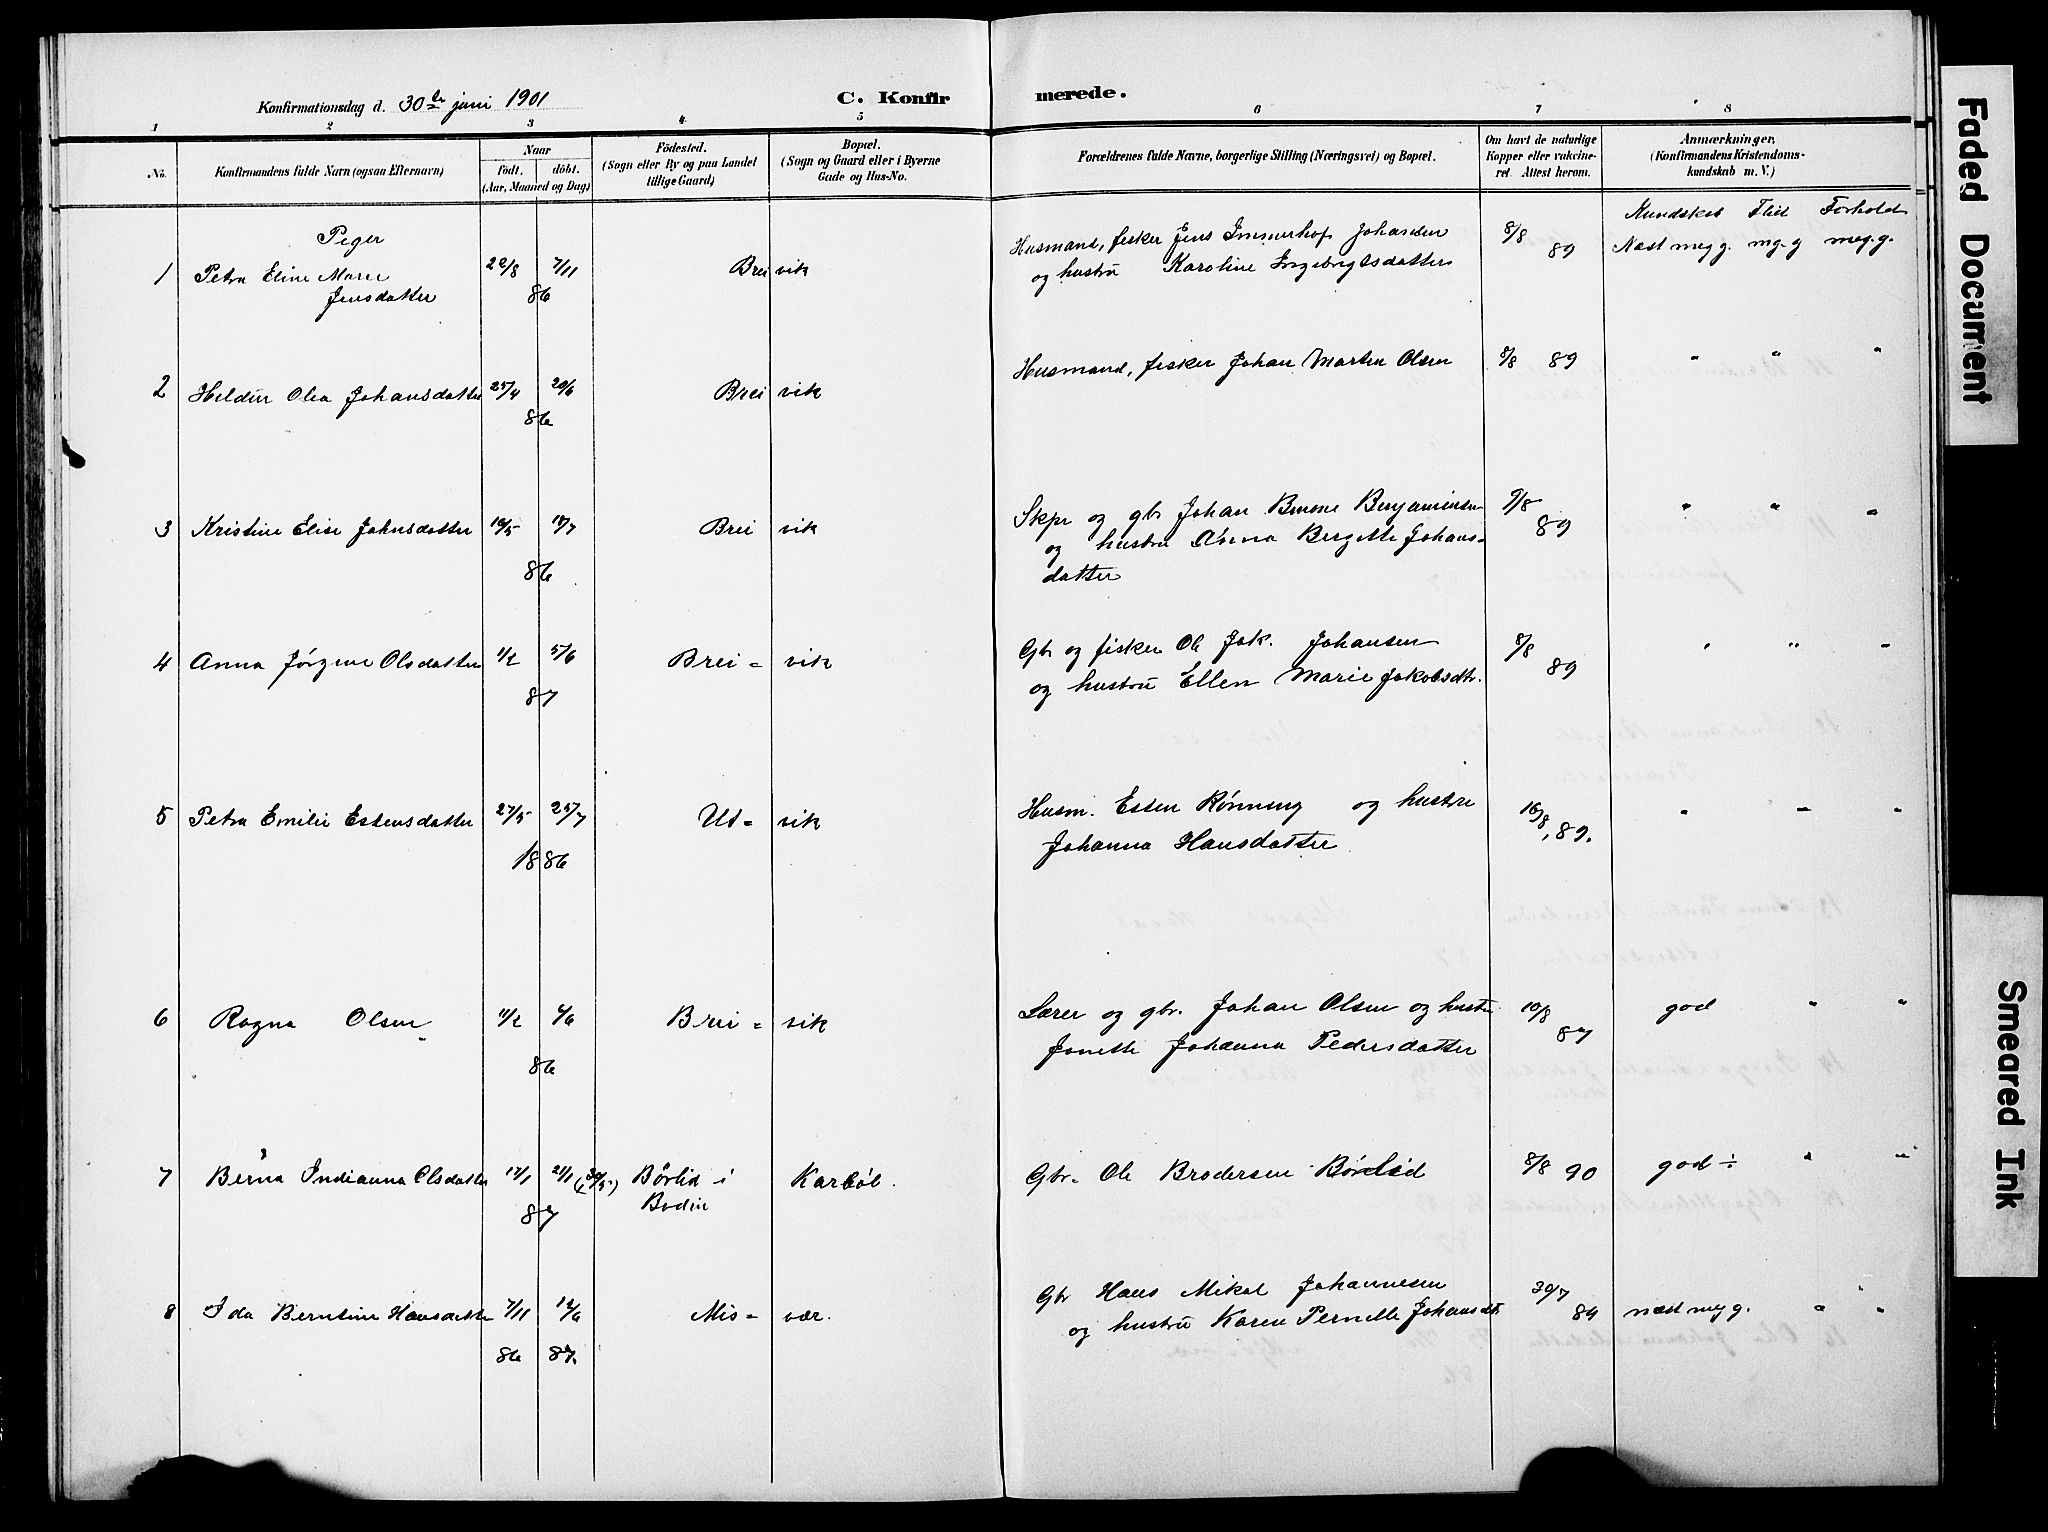 Konfirmationsdag d. 30te juni 1901
C. Konfirmerede.
1 2 3 4 5 6 7 8
No.
Konfirmandens fulde Navn (ogsaa Efternavn)
Naar
födt. döbt.
(Aar, Maaned og Dag)
Födested.
(Sogn eller By og paa Landet
tillige Gaard)
Bopæl.
(Sogn og Gaard eller i Byerne
Gade og Hus-No.
Forældrenes fulde Navne, borgerlige Stilling (Næringsvei) og Bopæl.
Om havt de naturlige
Kopper eller vakcine-
ret. Attest herom.
Anmærkninger.
(Konfirmandens Kristendoms-
kundskab m. V.)
Kundskab Flid Forhold
Piger
1 Petra Eline
Jensdatter
22/8 7/11
86
Breivik
Husmand, fisker Jens Immerhof Johansen
og hustru Karoline Ingebrigtsdatter
8/8 89
Næst meg g. mg. g meg. g.
2 Heldur Olea Johansdatter 25/4 20/6
86
Breivik
Husmand, fisker Johan Martin Olsen
8/8 89 " " "
3 Kristine Elise Johnsdatter 16/5 18/7
86
Brei vik
Skpr og gbr Johan Benjaminsen
og hustru Anna Bergitte Johans-
datter
9/8 89 " " "
4 Anna Jörgine Olsdatter 1/2 5/6
87
Brei = vik
Gbr og fisker Ole Jak. Johansen
og hustru Ellen Marie Jakobsdtr.
8/8 89 " " "
5 Petra Emilie Estensdatter 27/5 25/7
1886
Ut = vik
Husm. Esten Rönning og hustru
Johanna Hansdatter
16/8, 89. " " "
6 Ragna Olsen 11/2 6/6
86
Brei = vik
Lærer og gbr. Johan Olsen og hustru
Jonette Johanna Pedersdatter
10/8 87 god " "
7 Berna Indianna Olsdatter 17/1 21/1 (30/5)
87
Börlid i
Bodin
Karböl.
Gbr. Ole Brodersen Börelid
8/8 90 god ÷ " "
8 Ida Berntine Hansdatter 7/11 12/6
86 87.
Mis = vær.
Gbr Hans Mikal Johannesen
og hustru Karen Pernelle Johansdt.
30/7 89 næst meg g. " "
Faded Document
Smeared Ink